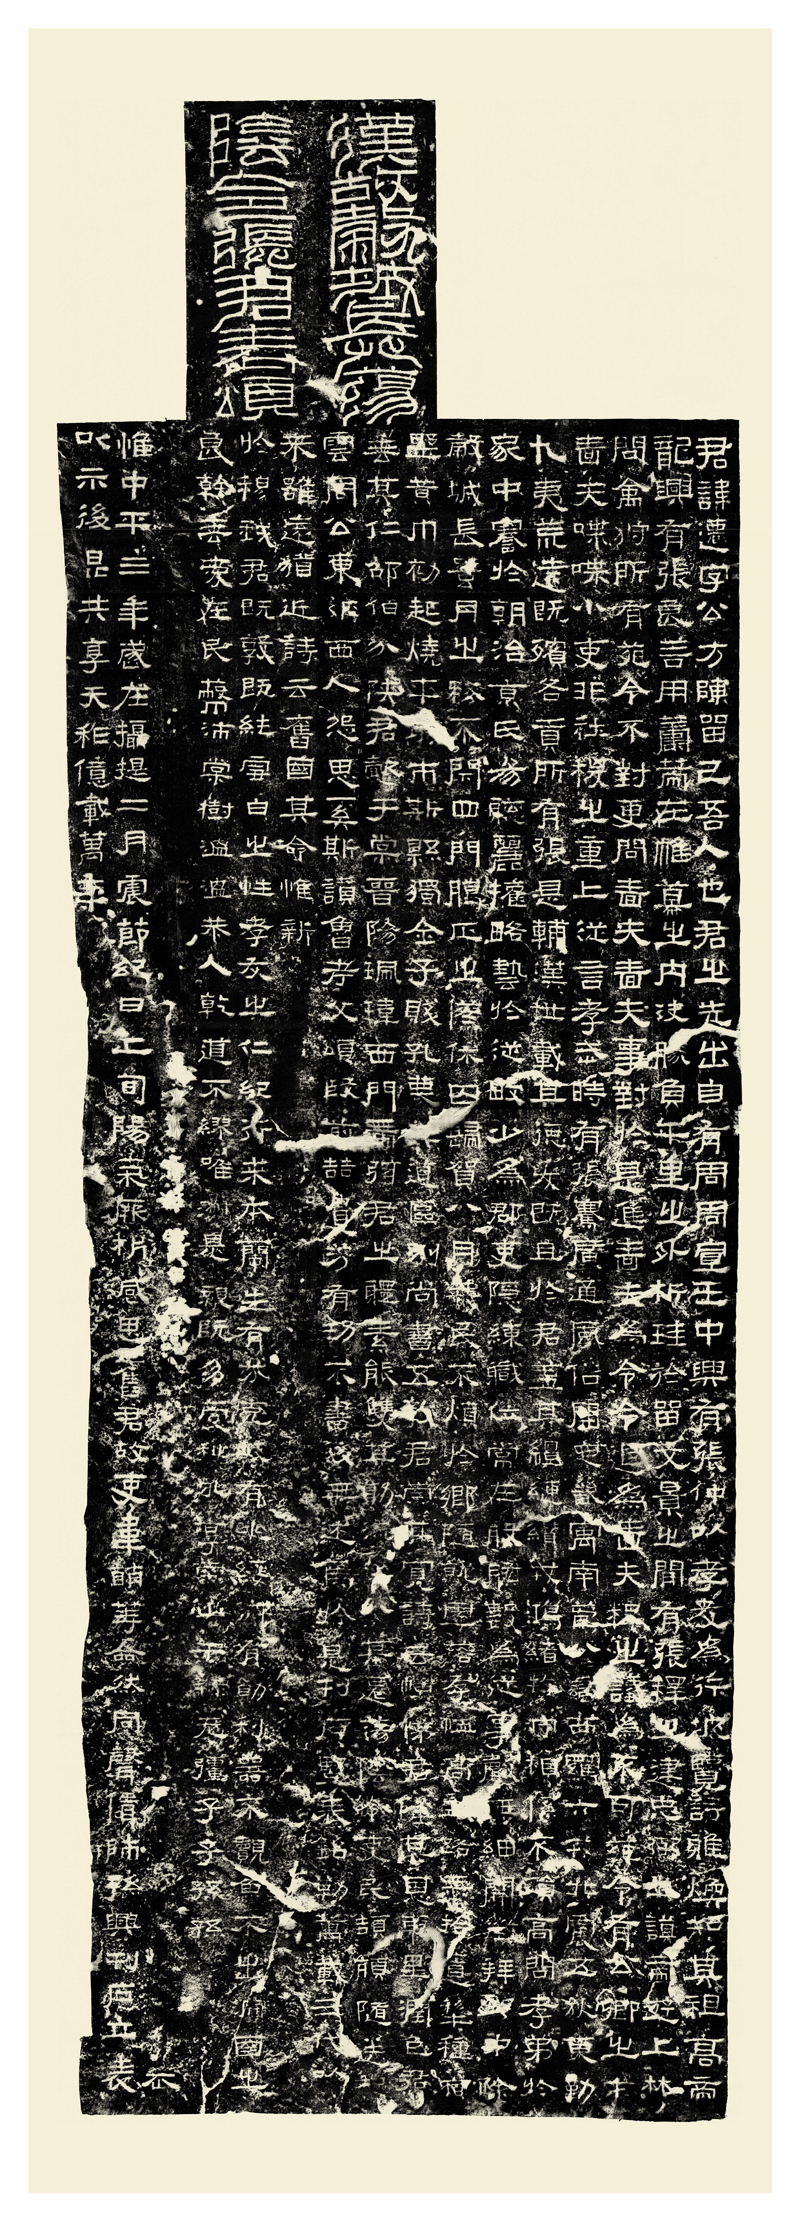 漢故穀城長蕩
陰令張君表頌
君諱遷字公方陳留己吾人也君之先出自有周周宣王中興有張仲以孝友為行披覽詩雅煥知其祖高帝
龍興有張良善用籌策在帷幕之內決勝負千里之外析珪於留文景之間有張釋之建忠弼之謨帝遊上林
問禽狩所有苑令不對更問嗇夫嗇夫事對於是進嗇夫為令令退為嗇夫釋之議為不可苑令有公卿之才
嗇夫喋喋小吏非社稷之重上從言孝武時有張騫廣通風俗開定畿寓南苞八蠻西羈六戎北震五狄東勤
九夷荒遠既殯各貢所有張是輔漢世載其德爰既且於君蓋其繵縺纘戎鴻緒牧守相係不殞高問孝弟於
家中謇於朝治京氏易聰麗權略藝於從畋少為郡吏隱練職位常在股肱數為從事聲無細聞徵拜郎中除
穀城長蠶月之務不閉四門臘正之僚休囚歸賀八月算民不煩於鄉隨就虛落存恤高年路無拾遺犁種宿
野黃巾初起燒平城市斯縣獨全子賤孔蔑其道區別尚書五教君崇其寬詩云愷悌君隆其恩東里潤色君
垂其仁邵伯分陝君懿于棠晉陽珮瑋西門帶弦君之體素能雙其勛流化八基遷蕩陰令吏民頡頏隨送如
雲周公東征西人怨思奚斯讚魯考父頌殷前喆遺芳有功不書後無述焉於是刊石豎表銘勒萬載三代以
來雖遠猶近詩云舊國其命惟新
於穆我君既敦既純雪白之性孝友之仁紀行求本蘭生有芬克岐有兆綏御有勛利器不覿魚不出淵國之
良幹垂愛在民蔽沛棠樹溫溫恭人乾道不繆唯淑是親既多受祉永享南山干祿無疆子子孫孫
惟中平三年歲在攝提二月震節紀日上旬陽氣厥析感思舊君故吏韋萌等僉然同聲賃師孫興刊石立表
以示後昆共享天祚億載萬年